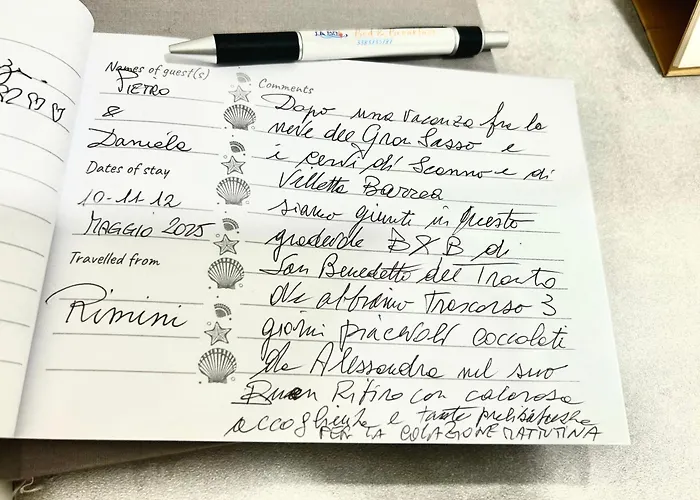 Names of guest(s)
PIETRO
&
Daniela
Dates of stay
10-11-12
MAGGIO 2025
Travelled from
Rimini
Comments
Dopo una vacanza fra la
neve del Gran Sasso e
i cervi di Scanno e di
Villetta Barrea
siamo giunti in questo
gradevole B&B di
San Benedetto del Tronto
ove abbiamo trascorso 3
giorni piacevoli coccolati
da Alessandra nel suo
Buen Ritiro con calorosa
accoglienza e tante prelibatezze
PER LA COLAZIONE MATTUTINA
Bed & Breakfast